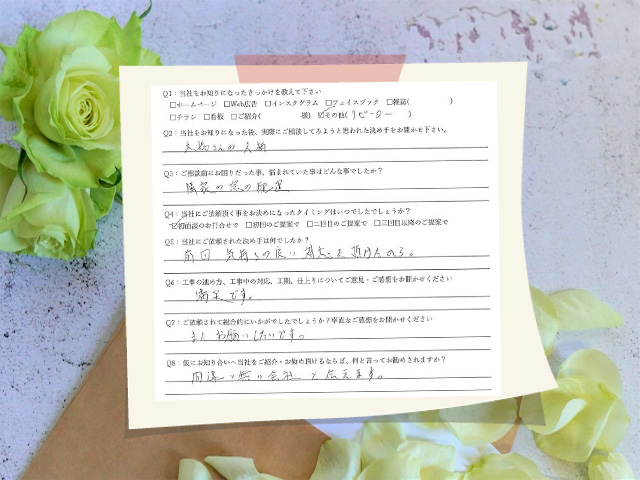 Q1：当社をお知りになったきっかけを教えて下さい
□ホームページ □Web広告 □インスタグラム □フェイスブック □雑誌( )
□チラシ □看板 □ご紹介( 様) ☑その他(リピーター )
Q2：当社をお知りになった後、実際にご相談してみようと思われた決め手をお聞かせ下さい。
さんの人柄
Q3：ご相談前にお困りだった事、悩まれていた事はどんな事でしたか？
隣家の窓の配置
Q4：当社にご依頼頂く事をお決めになったタイミングはいつでしたでしょうか？
☑初面談のお打合せで □初回のご提案で □二回目のご提案で □三回目以降のご提案で
Q5：当社にご依頼された決め手は何でしたか？
前回 気持ちの良い 対応を 頂けた
Q6：工事の進め方、工事中の対応、工期、仕上りについてご意見・ご感想をお聞かせください
満足です。
Q7：ご依頼されて総合的にいかがでしたでしょうか？率直なご感想をお聞かせください
また お願いしたいです。
Q8：仮にお知り合いへ当社をご紹介・お勧め頂けるならば、何と言ってお勧めされますか？
間違い無い会社 と 伝えます。